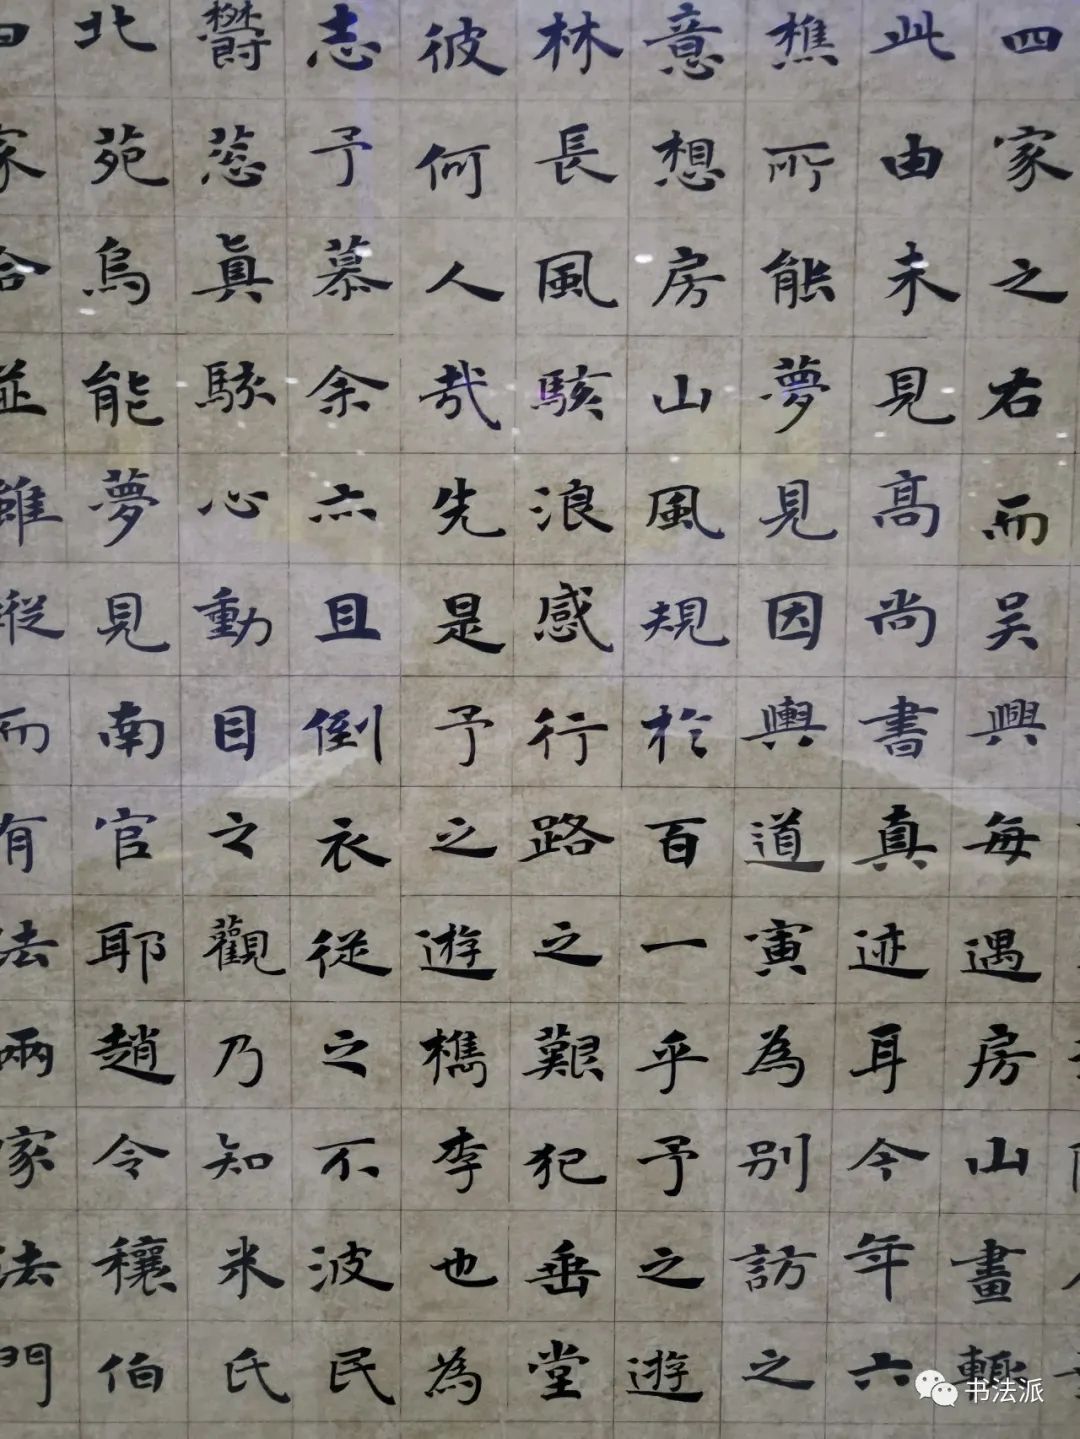 四家之右而吴興每遇房山畫輒
此由未見高尚書真迹耳今年六
樵所能夢見因輿道寅為別訪之
意想房山風規於百一乎予之遊
林長風駭浪感行路之艱犯垂堂
彼何人哉先是予之遊檇李也為
志予慕余亦且倒衣從之不波民
欝葱眞駭心動目之觀乃知米氏
北苑烏能夢見南官耶趙令穰伯
家合並雖縱而有法兩家法門
书法派